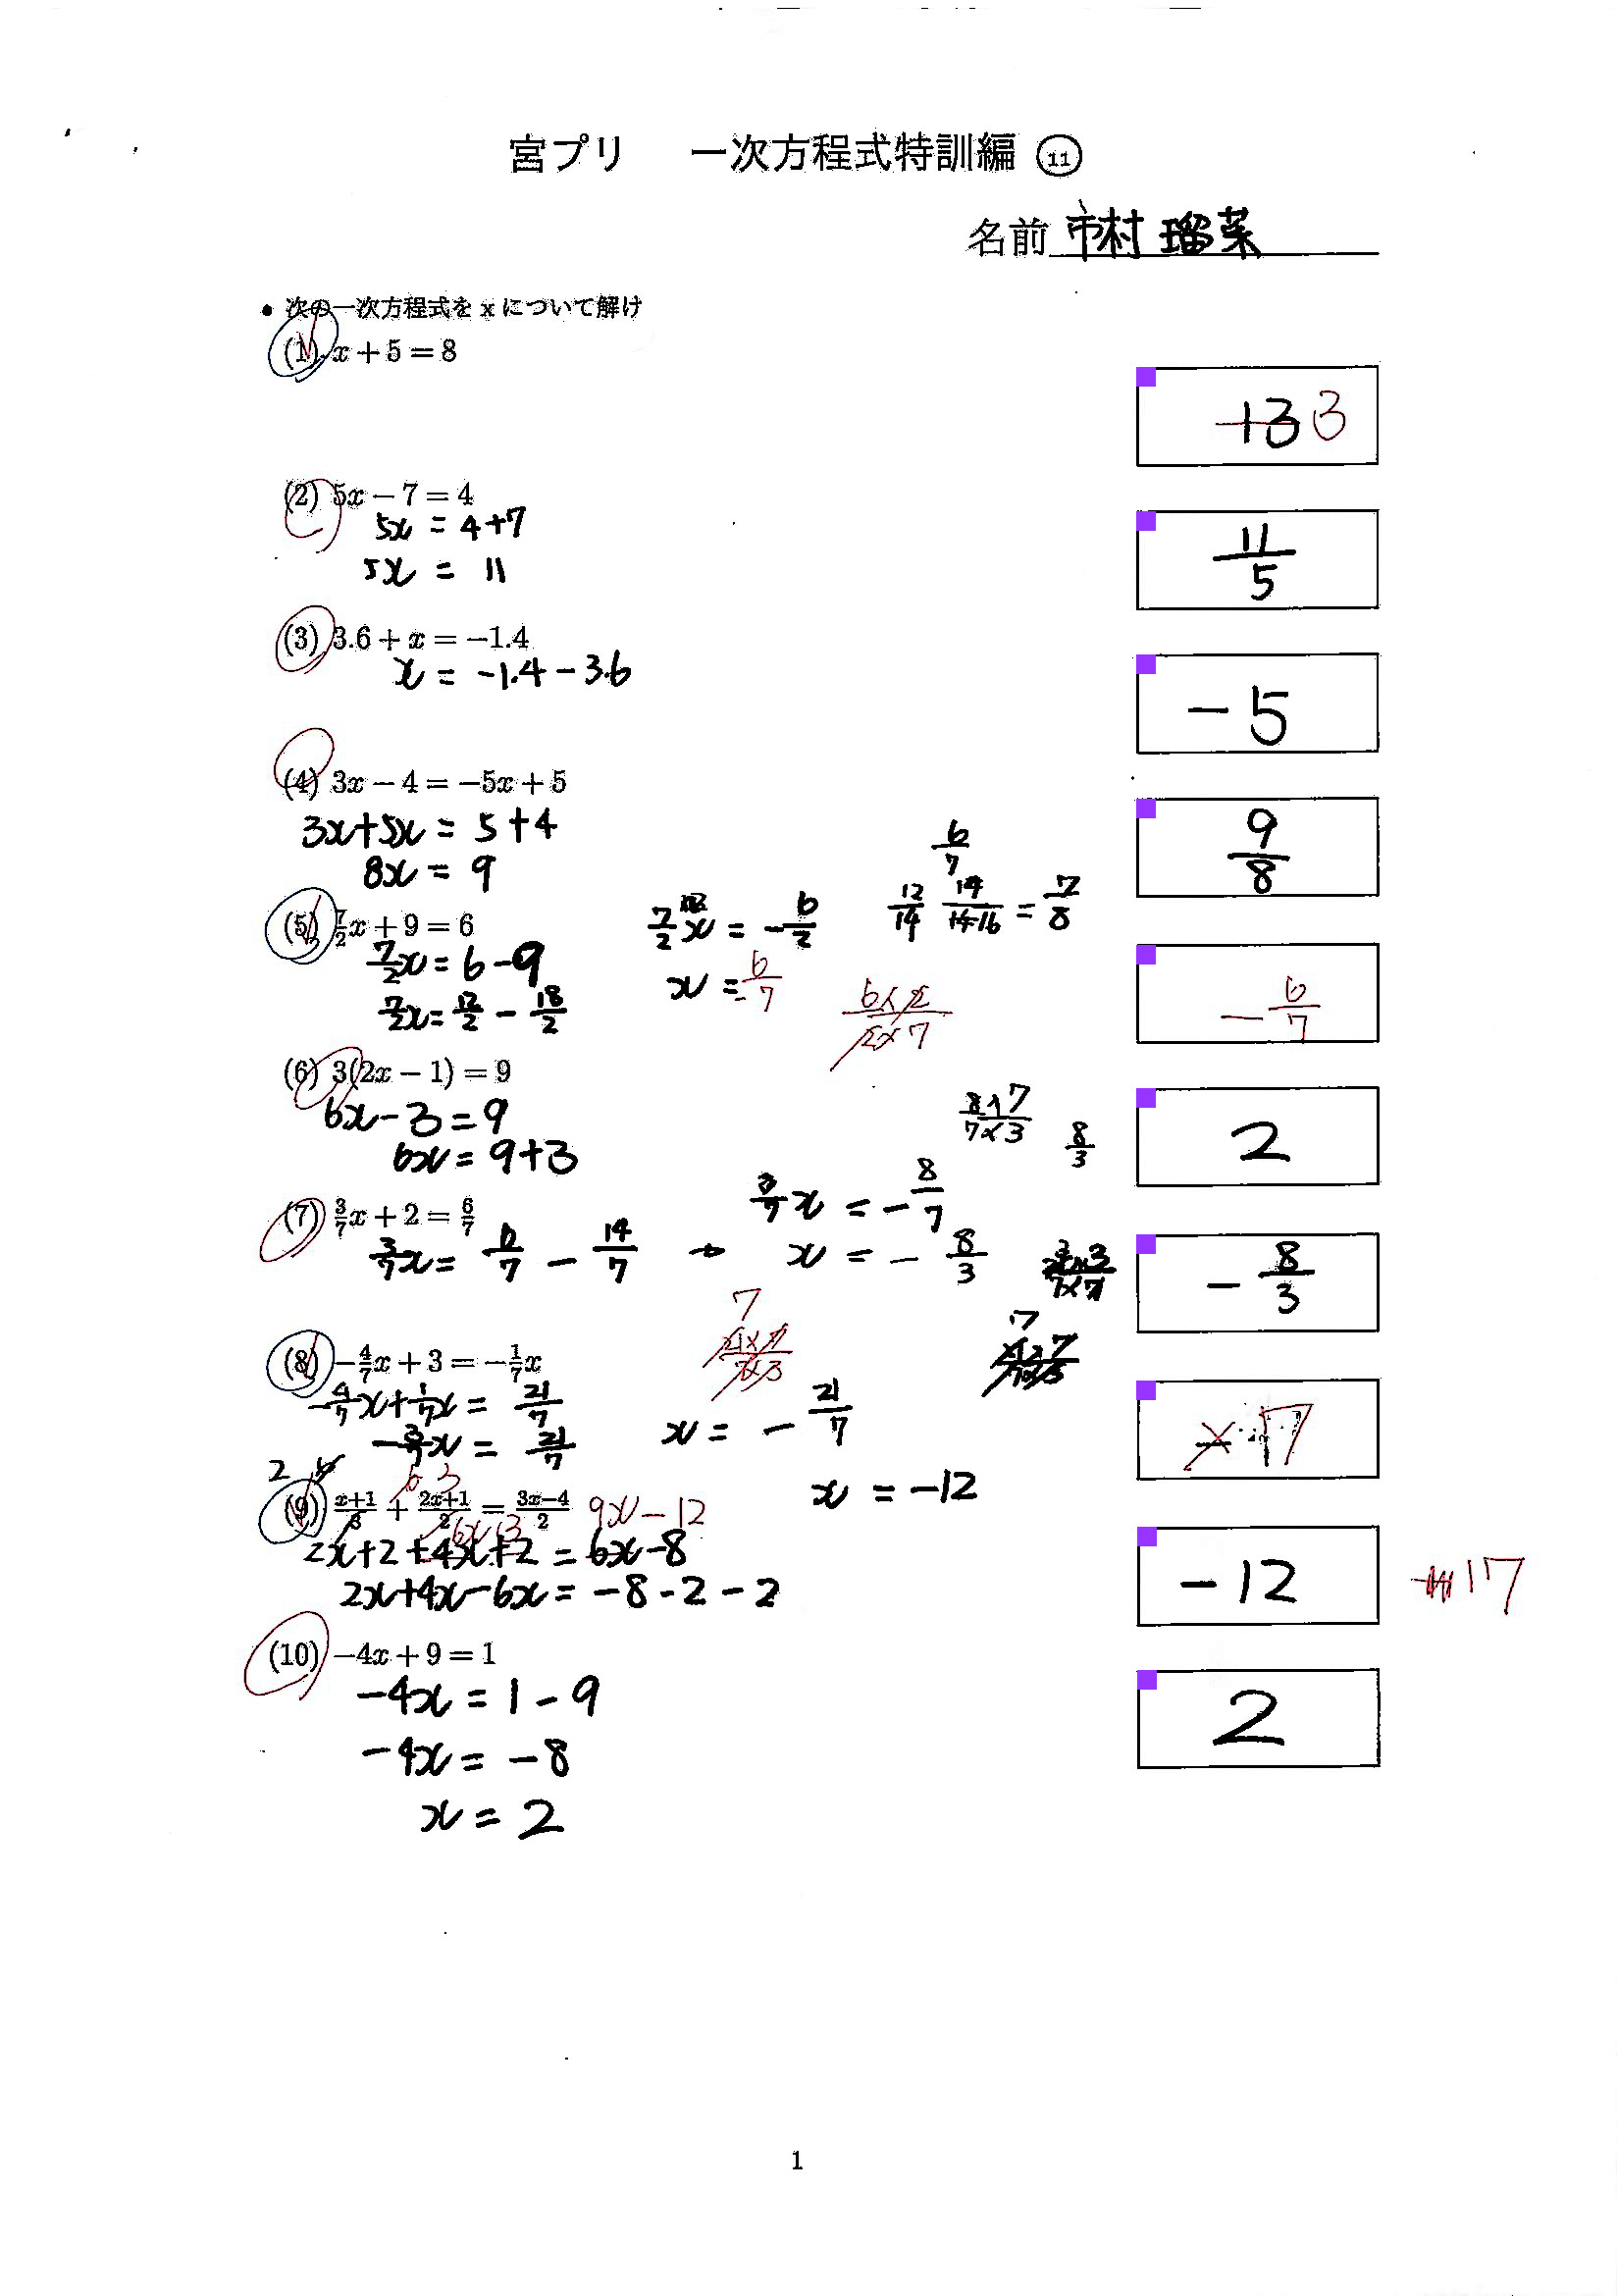 宮プリ 一次方程式特訓編 ⑪
名前 市村 瑠菜
• 次の一次方程式を x について解け
(1) x + 5 = 8
+3 3
(2) 5x − 7 = 4
5x = 4+7
5x = 11
11/5
(3) 3.6 + x = −1.4
x = -1.4 - 3.6
- 5
(4) 3x − 4 = −5x + 5
3x+5x = 5+4
8x = 9
9/8
(5) 7/2 x + 9 = 6
7/2 x = 6 - 9
7/2 x = 12/2 - 18/2
7/2 x = - 6/2
x = - 6/7
6/7
12/14 14/14-16 = 7/8
6×2/2×7
- 6/7
(6) 3(2x − 1) = 9
6x - 3 = 9
6x = 9+3
2
(7) 3/7 x + 2 = 6/7
3/7 x = 6/7 - 14/7 →
3/7 x = - 8/7
x = - 8/3
8×7/7×3 8/3
- 8/3
(8) −4/7 x + 3 = −1/7 x
-4/7 x + 1/7 x = 21/7
-3/7 x = 21/7
x = - 21/7
7
21×7/7×3
7
(9) x+1/3 + 2x+1/2 = 3x−4/2 9x - 12
2 6 3
6x+3
2x+2+4x+2 = 6x-8
2x+4x-6x = -8-2-2
x = -12
-12 17
(10) −4x + 9 = 1
-4x = 1 - 9
-4x = -8
x = 2
2
1